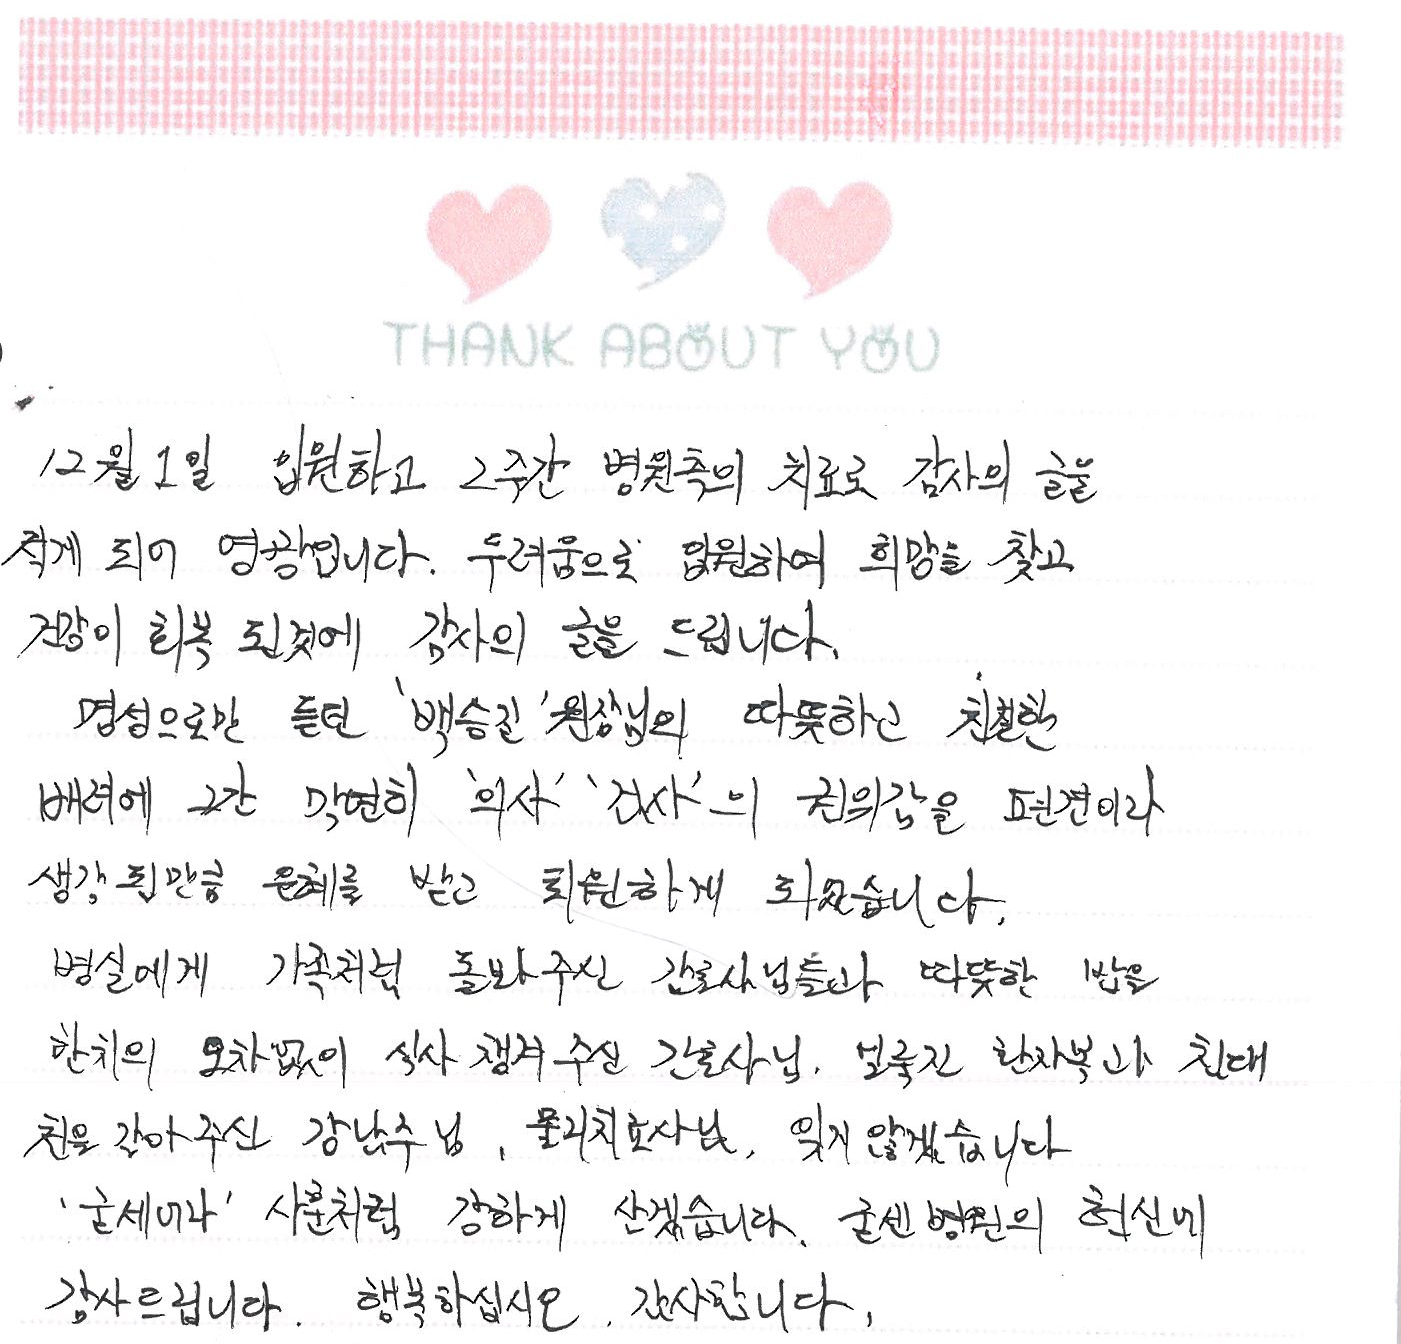 THANK ABOUT YOU
12월 1일 입원하고 2주간 병원측의 치료로 감사의 글을
적게 되어 영광입니다. 두려움으로 입원하여 희망을 찾고
건강이 회복 된것에 감사의 글을 드립니다.
명성으로만 듣던 '백승길' 원장님의 따뜻하고 친절한
배려에 그간 막연히 '의사' '검사'의 권위감을 편견이라
생각 될만큼 은혜를 받고 퇴원하게 되었습니다.
병실에게 가족처럼 돌봐주신 간호사님들과 따뜻한 밥을
한치의 오차없이 식사 챙겨주신 간호사님. 얼룩진 환자복과 침대
천을 갈아주신 강남수님, 물리치료사님, 잊지 않겠습니다
'굳세어라' 사훈처럼 강하게 살겠습니다. 굳센병원의 헌신에
감사드립니다. 행복하십시오. 감사합니다.